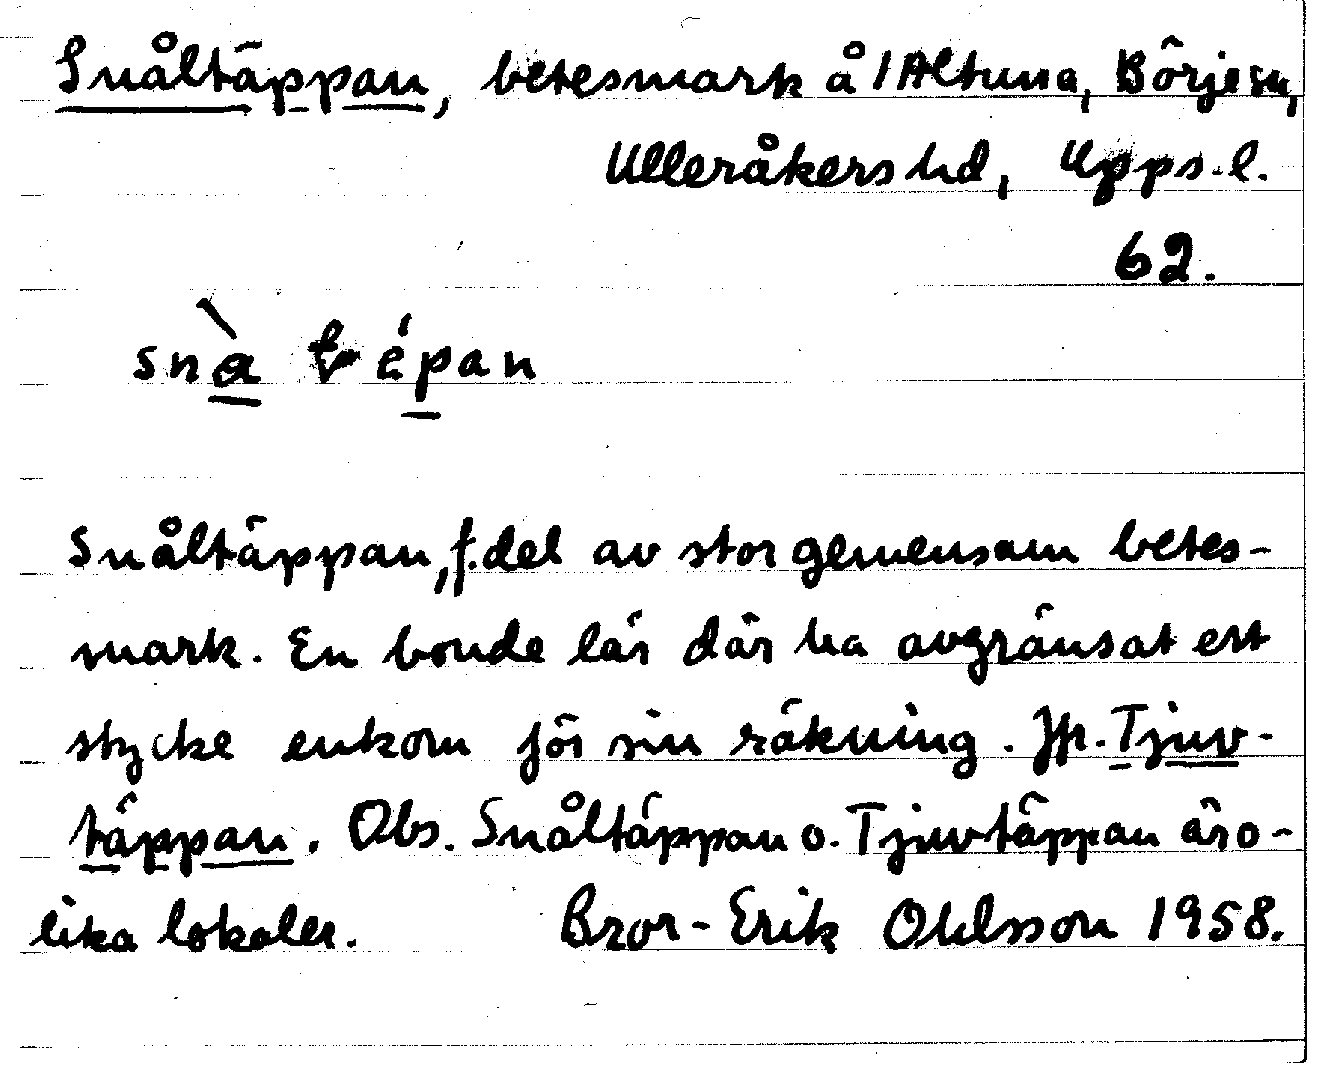 Snåltäppan, betesmark å /Altuna, Börje sn,
Ulleråkers hd, Upps. l.
62.
snà tépan
Snåltäppan, f. del av stor gemensam betes-
mark. En bonde lär där ha avgränsat ett
stycke enkom för sin räkning. Jfr. Tjuv-
täppan. Obs. Snåltäppan o. Tjuvtäppan är o-
lika lokaler. Bror-Erik Ohlsson 1958.